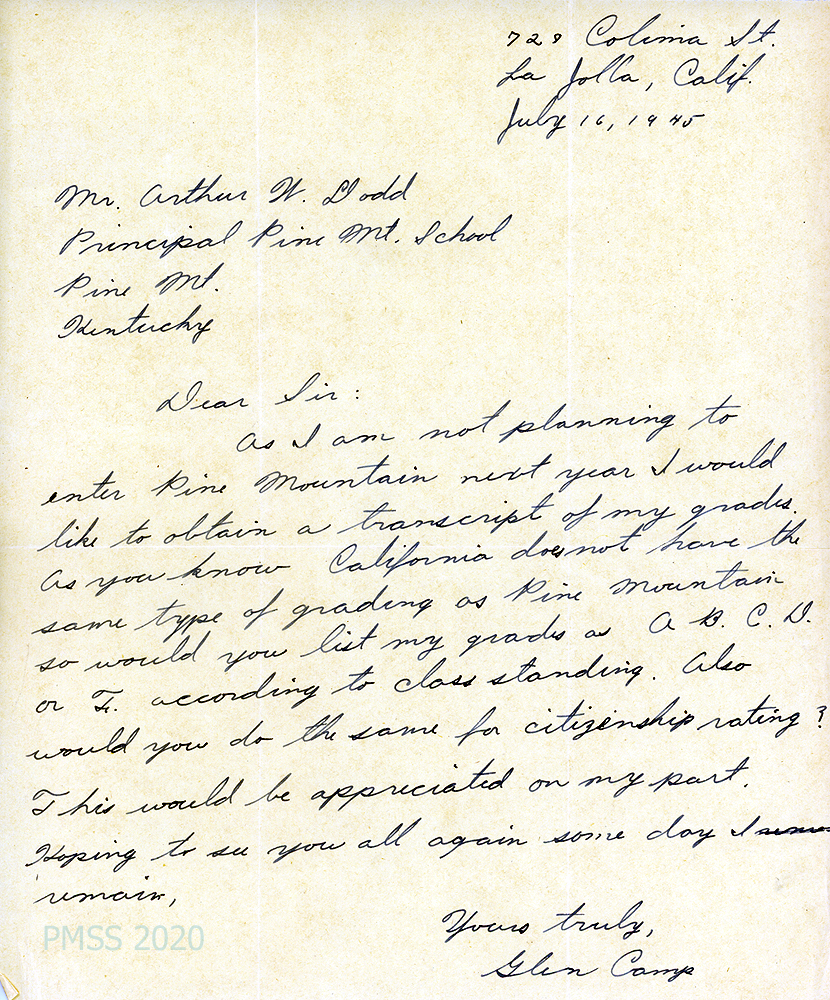 729 Colima St.
La Jolla, Calif.
July 16, 1945
Mr. Arthur W. Dodd
Principal Pine Mt. School
Pine Mt.
Kentucky
Dear Sir:
As I am not planning to
enter Pine Mountain next year I would
like to obtain a transcript of my grades.
As you know California does not have the
same type of grading as Pine Mountain
so would you list my grades as A B. C. D.
or F. according to class standing. Also
would you do the same for citizenship rating?
This would be appreciated on my part.
Hoping to see you all again some day I
remain,
Yours truly,
Glen Camp
PMSS 2020